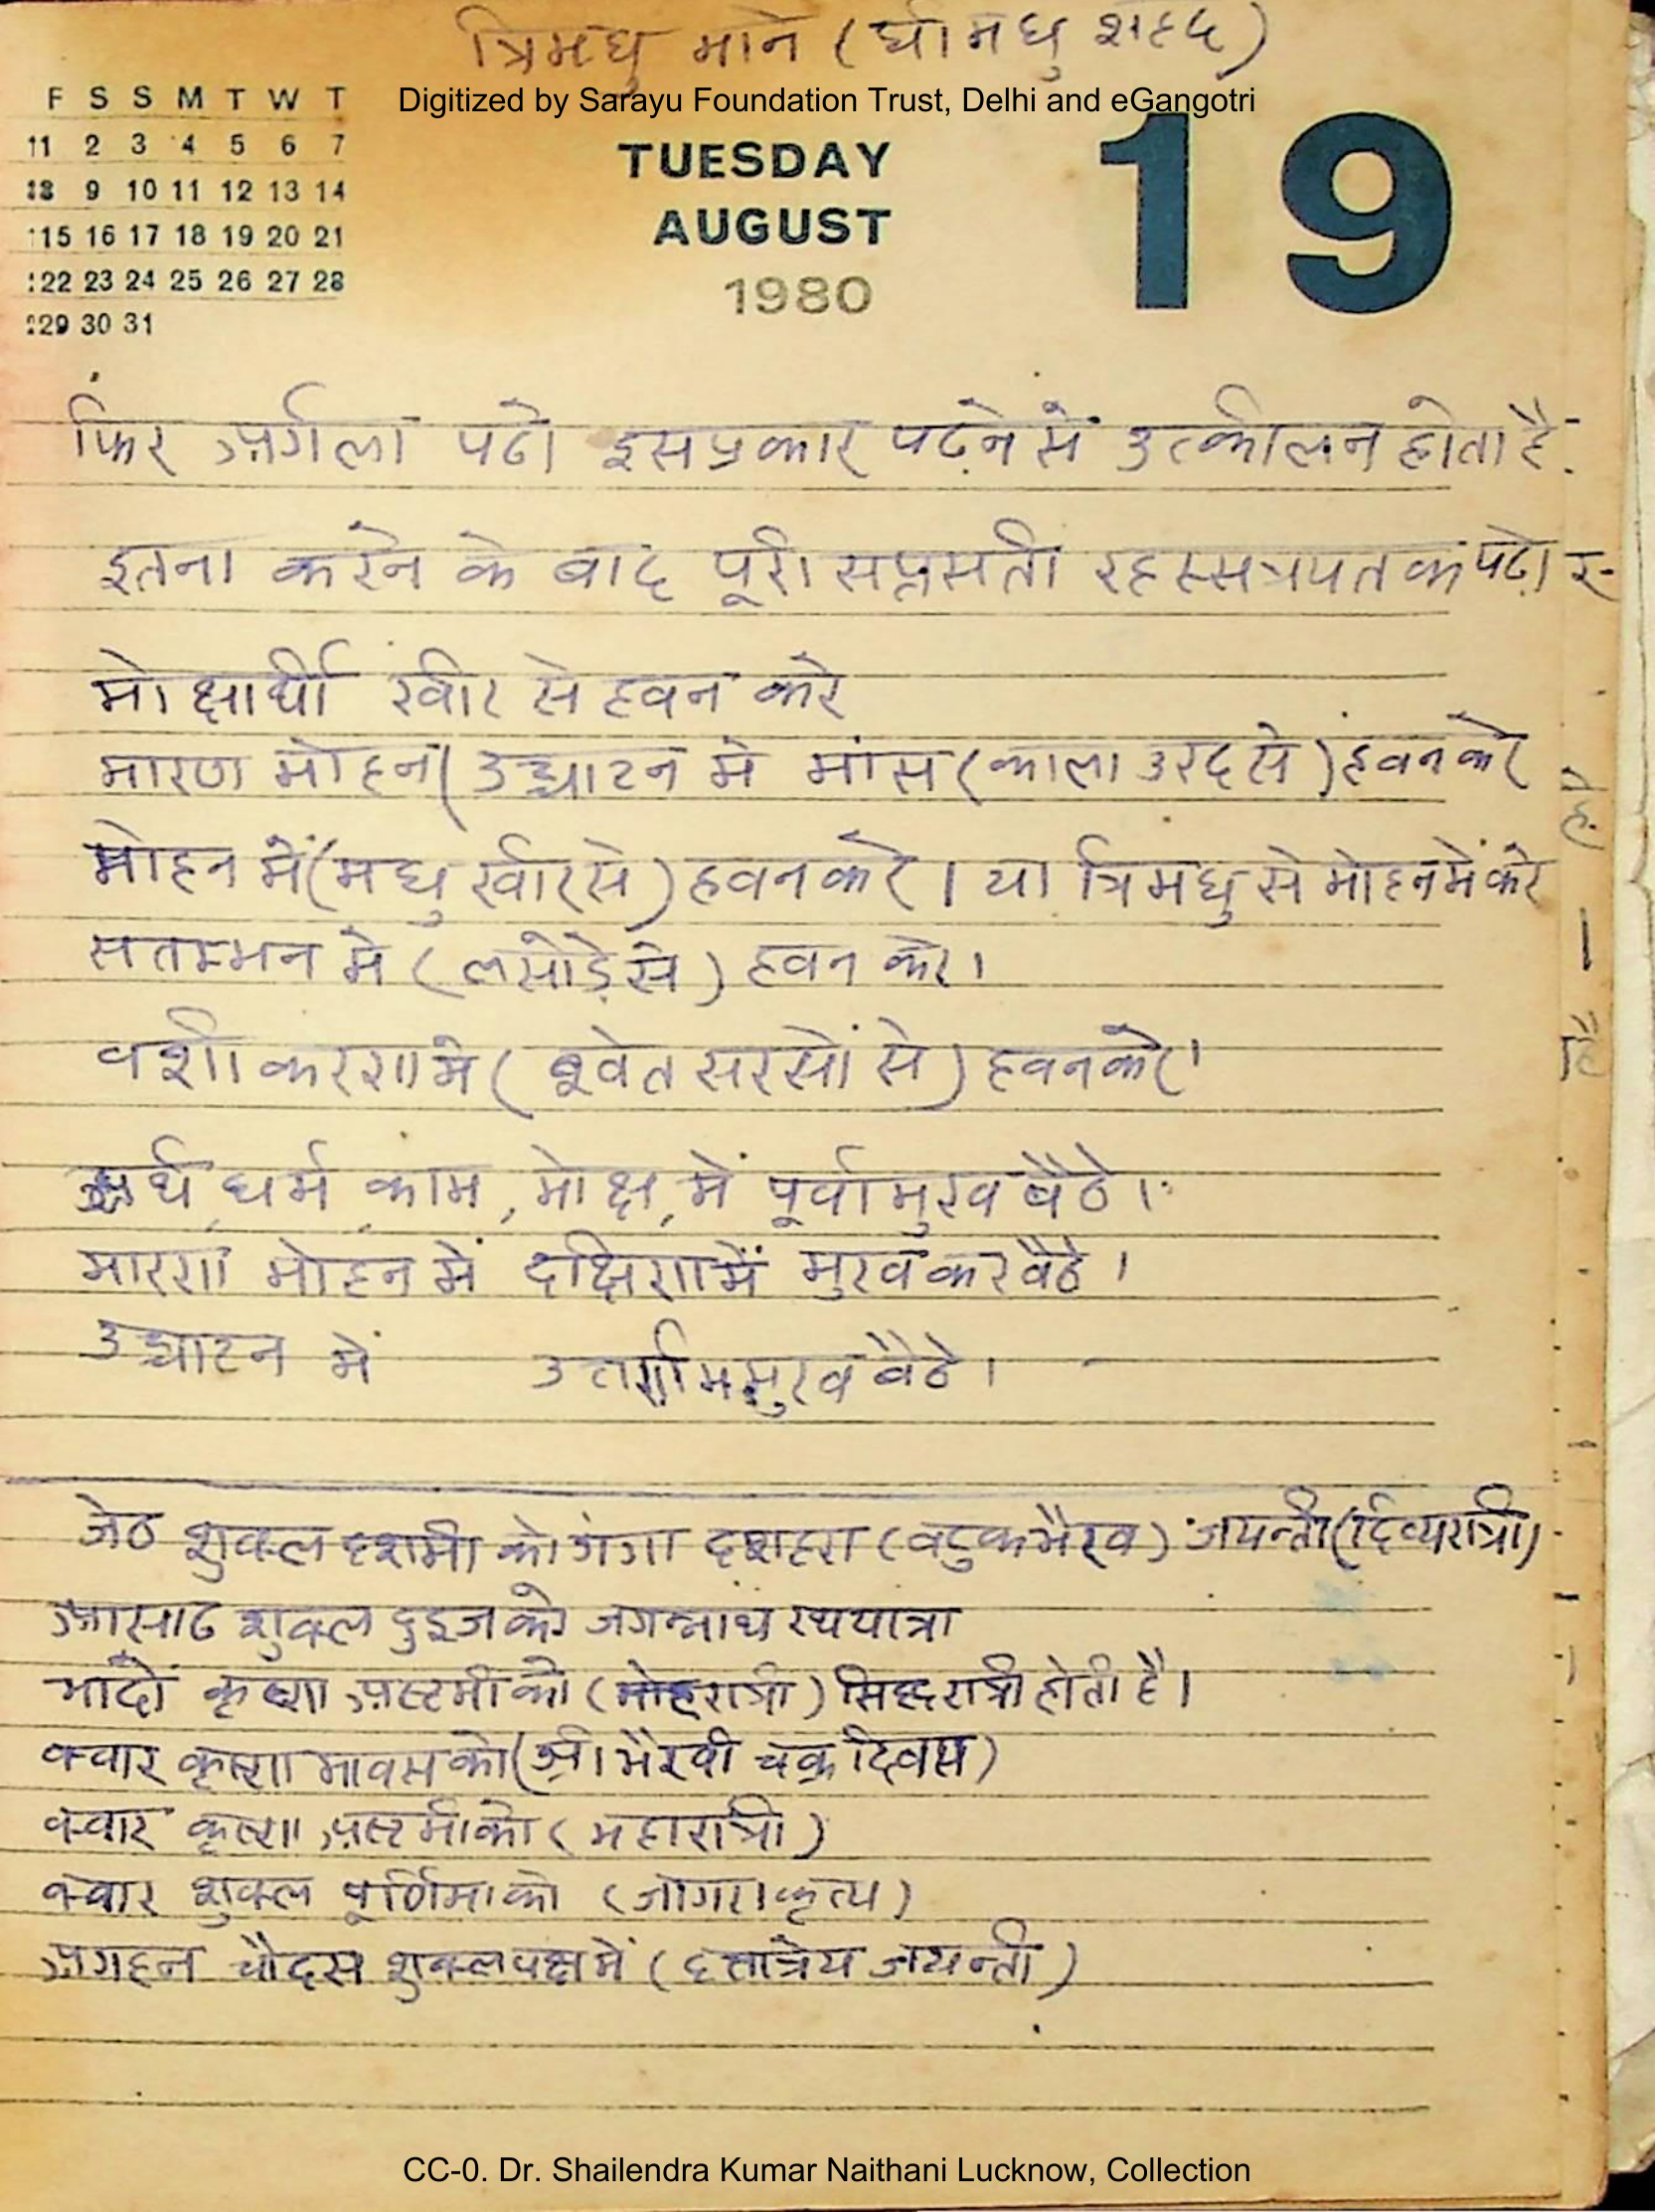 त्रिमधु माने (घी मधु शहद)
Digitized by Sarayu Foundation Trust, Delhi and eGangotri
F S S M T W T
1 2 3 4 5 6 7
8 9 10 11 12 13 14
15 16 17 18 19 20 21
22 23 24 25 26 27 28
29 30 31
TUESDAY
AUGUST
1980
19
फिर अर्गला पढो इसप्रकार पढ़ने में उत्कीलन होता है
इतना करने के बाद पूरी सप्तसती पढ़ो
मोक्षार्थी खीर से हवन करे
मारण मोहन ( उच्चाटन मे मांस (काला उरद से) हवन करे
मोहन में (मधु खीर से) हवन करे । या त्रिमधु से मोहन में करे
सतम्भन मे (लसोड़े से) हवन करे।
वशीकरण मे (श्वेत सरसों से) हवन करे।
अर्थ, धर्म, काम, मोक्ष, में पूर्वामुख बैठे।
मारण मोहन में दक्षिण में मुख कर बैठे।
उच्चाटन में मुख बैठे।
जेठ शुक्ल दशमी को गंगा दशहरा (वटुक भैरव) जयन्ती (दिव्यरात्री)
आसाढ शुक्ल दुइज को जगन्नाथ रथयात्रा
भादों कृष्ण अष्टमी को (मोहरात्री) सिद्धरात्री होती है।
क्वार कृष्ण मावस को (श्री भैरवी चक्र दिवस)
क्वार कृष्ण अष्टमी को (महारात्री)
क्वार शुक्ल पूर्णिमा को (जागरा कृत्य)
अगहन चौदस शुक्लपक्ष में (दत्तात्रेय जयन्ती)
CC-0. Dr. Shailendra Kumar Naithani Lucknow, Collection